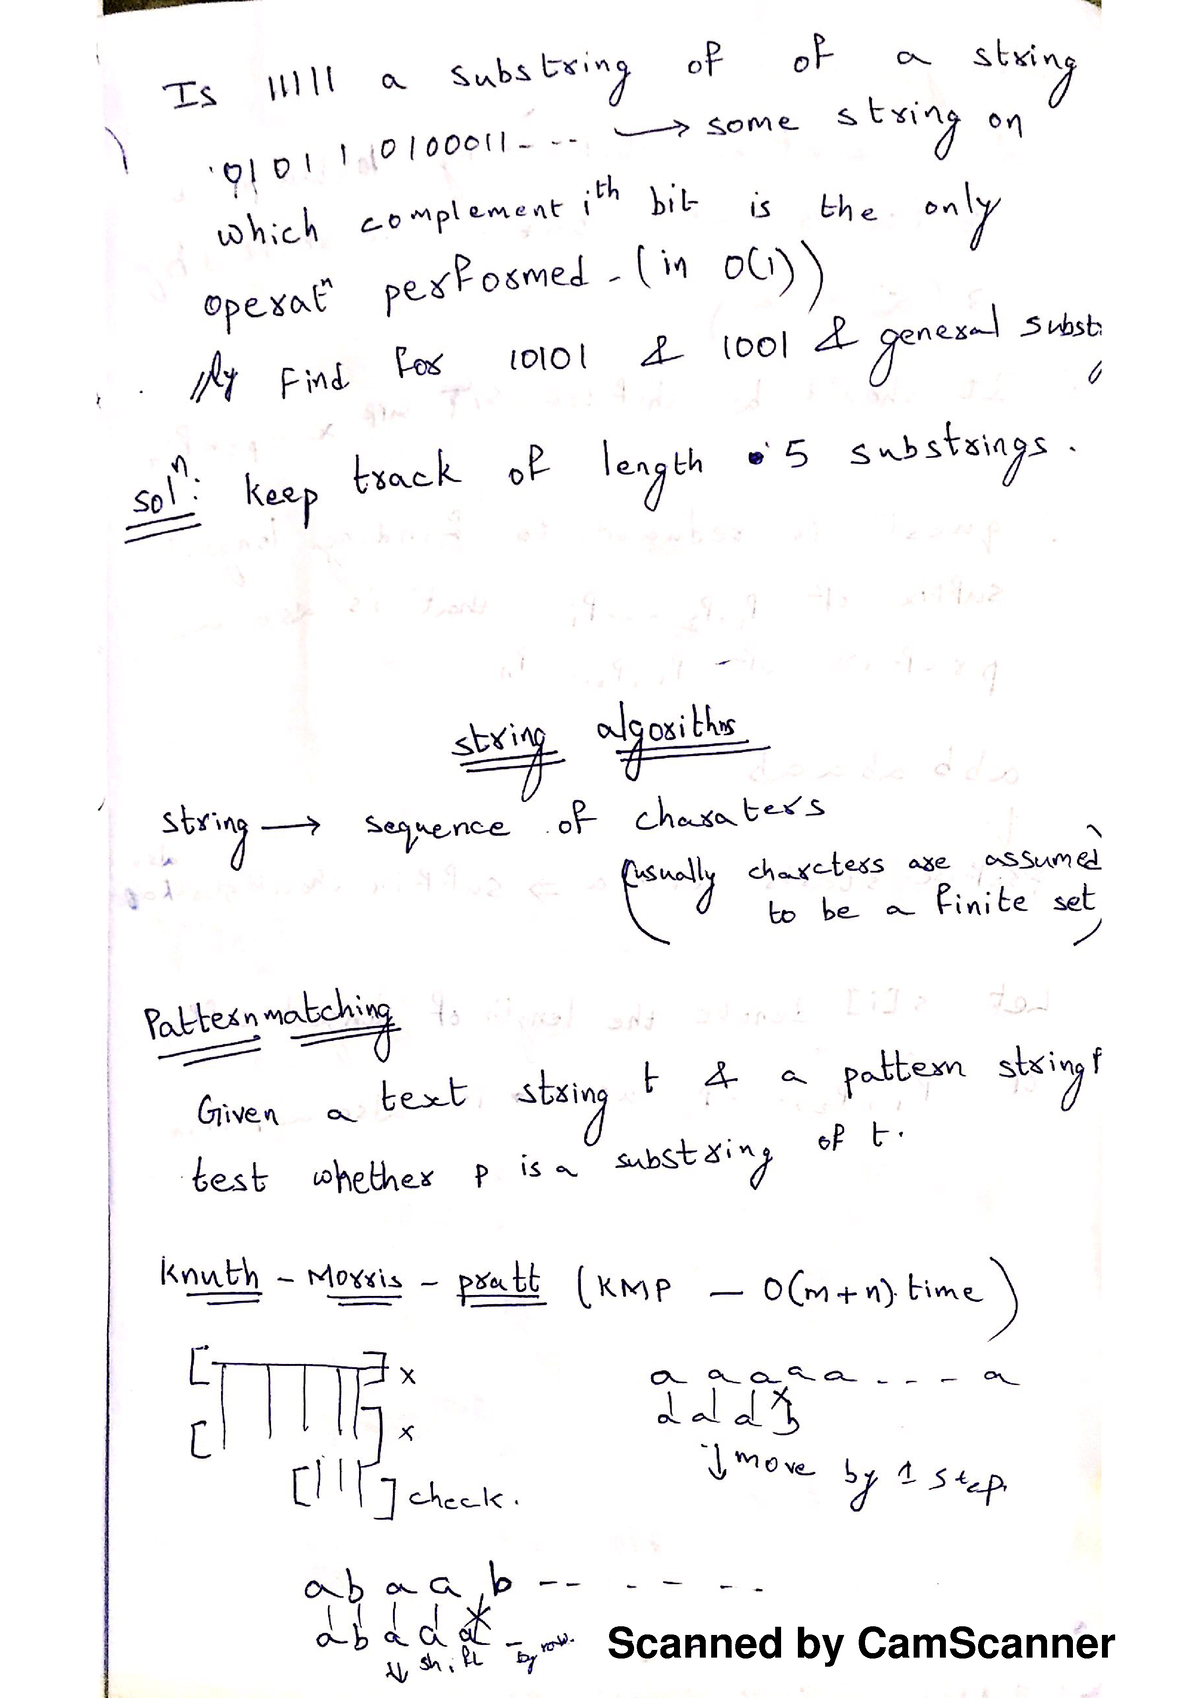 Is 11111 a substring of of a string
010110100011- - - → some string on
which complement ith bit is the only
operatn performed - (in O(1))
lly Find For 10101 & 1001 & general subst
soln: keep track of length 5 substrings.
string algorithms
string → sequence of charaters
(usually charcters are assumed
to be a finite set)
Pattern matching
Given a text string t & a pattern string P
test whether P is a substring of t.
Knuth - Morris - pratt (KMP — O(m+n) time)
x a a a a a - - - - a
x a a a b
↓ move by 1 step.
check.
a b a a b -- - - - -
a b a a a
↓ shift by
Scanned by CamScanner